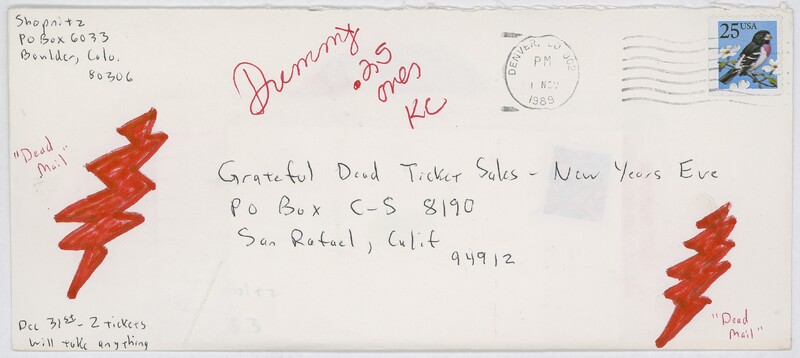 Shopnitz
PO Box 6033
Boulder, Colo.
80306
Dummy
.25
ones
KC
DENVER, CO 802
PM
1 NOV
1989
25 USA
"Dead
Mail"
Grateful Dead Ticket Sales - New Years Eve
PO Box C-S 8190
San Rafael, Calif
94912
Dec 31st - 2 tickets
will take anything
"Dead
Mail"